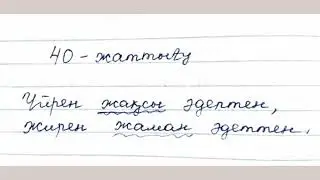 40 - жаттығу
Үйрен жақсы әдептен,
жирен жаман әдеттен.